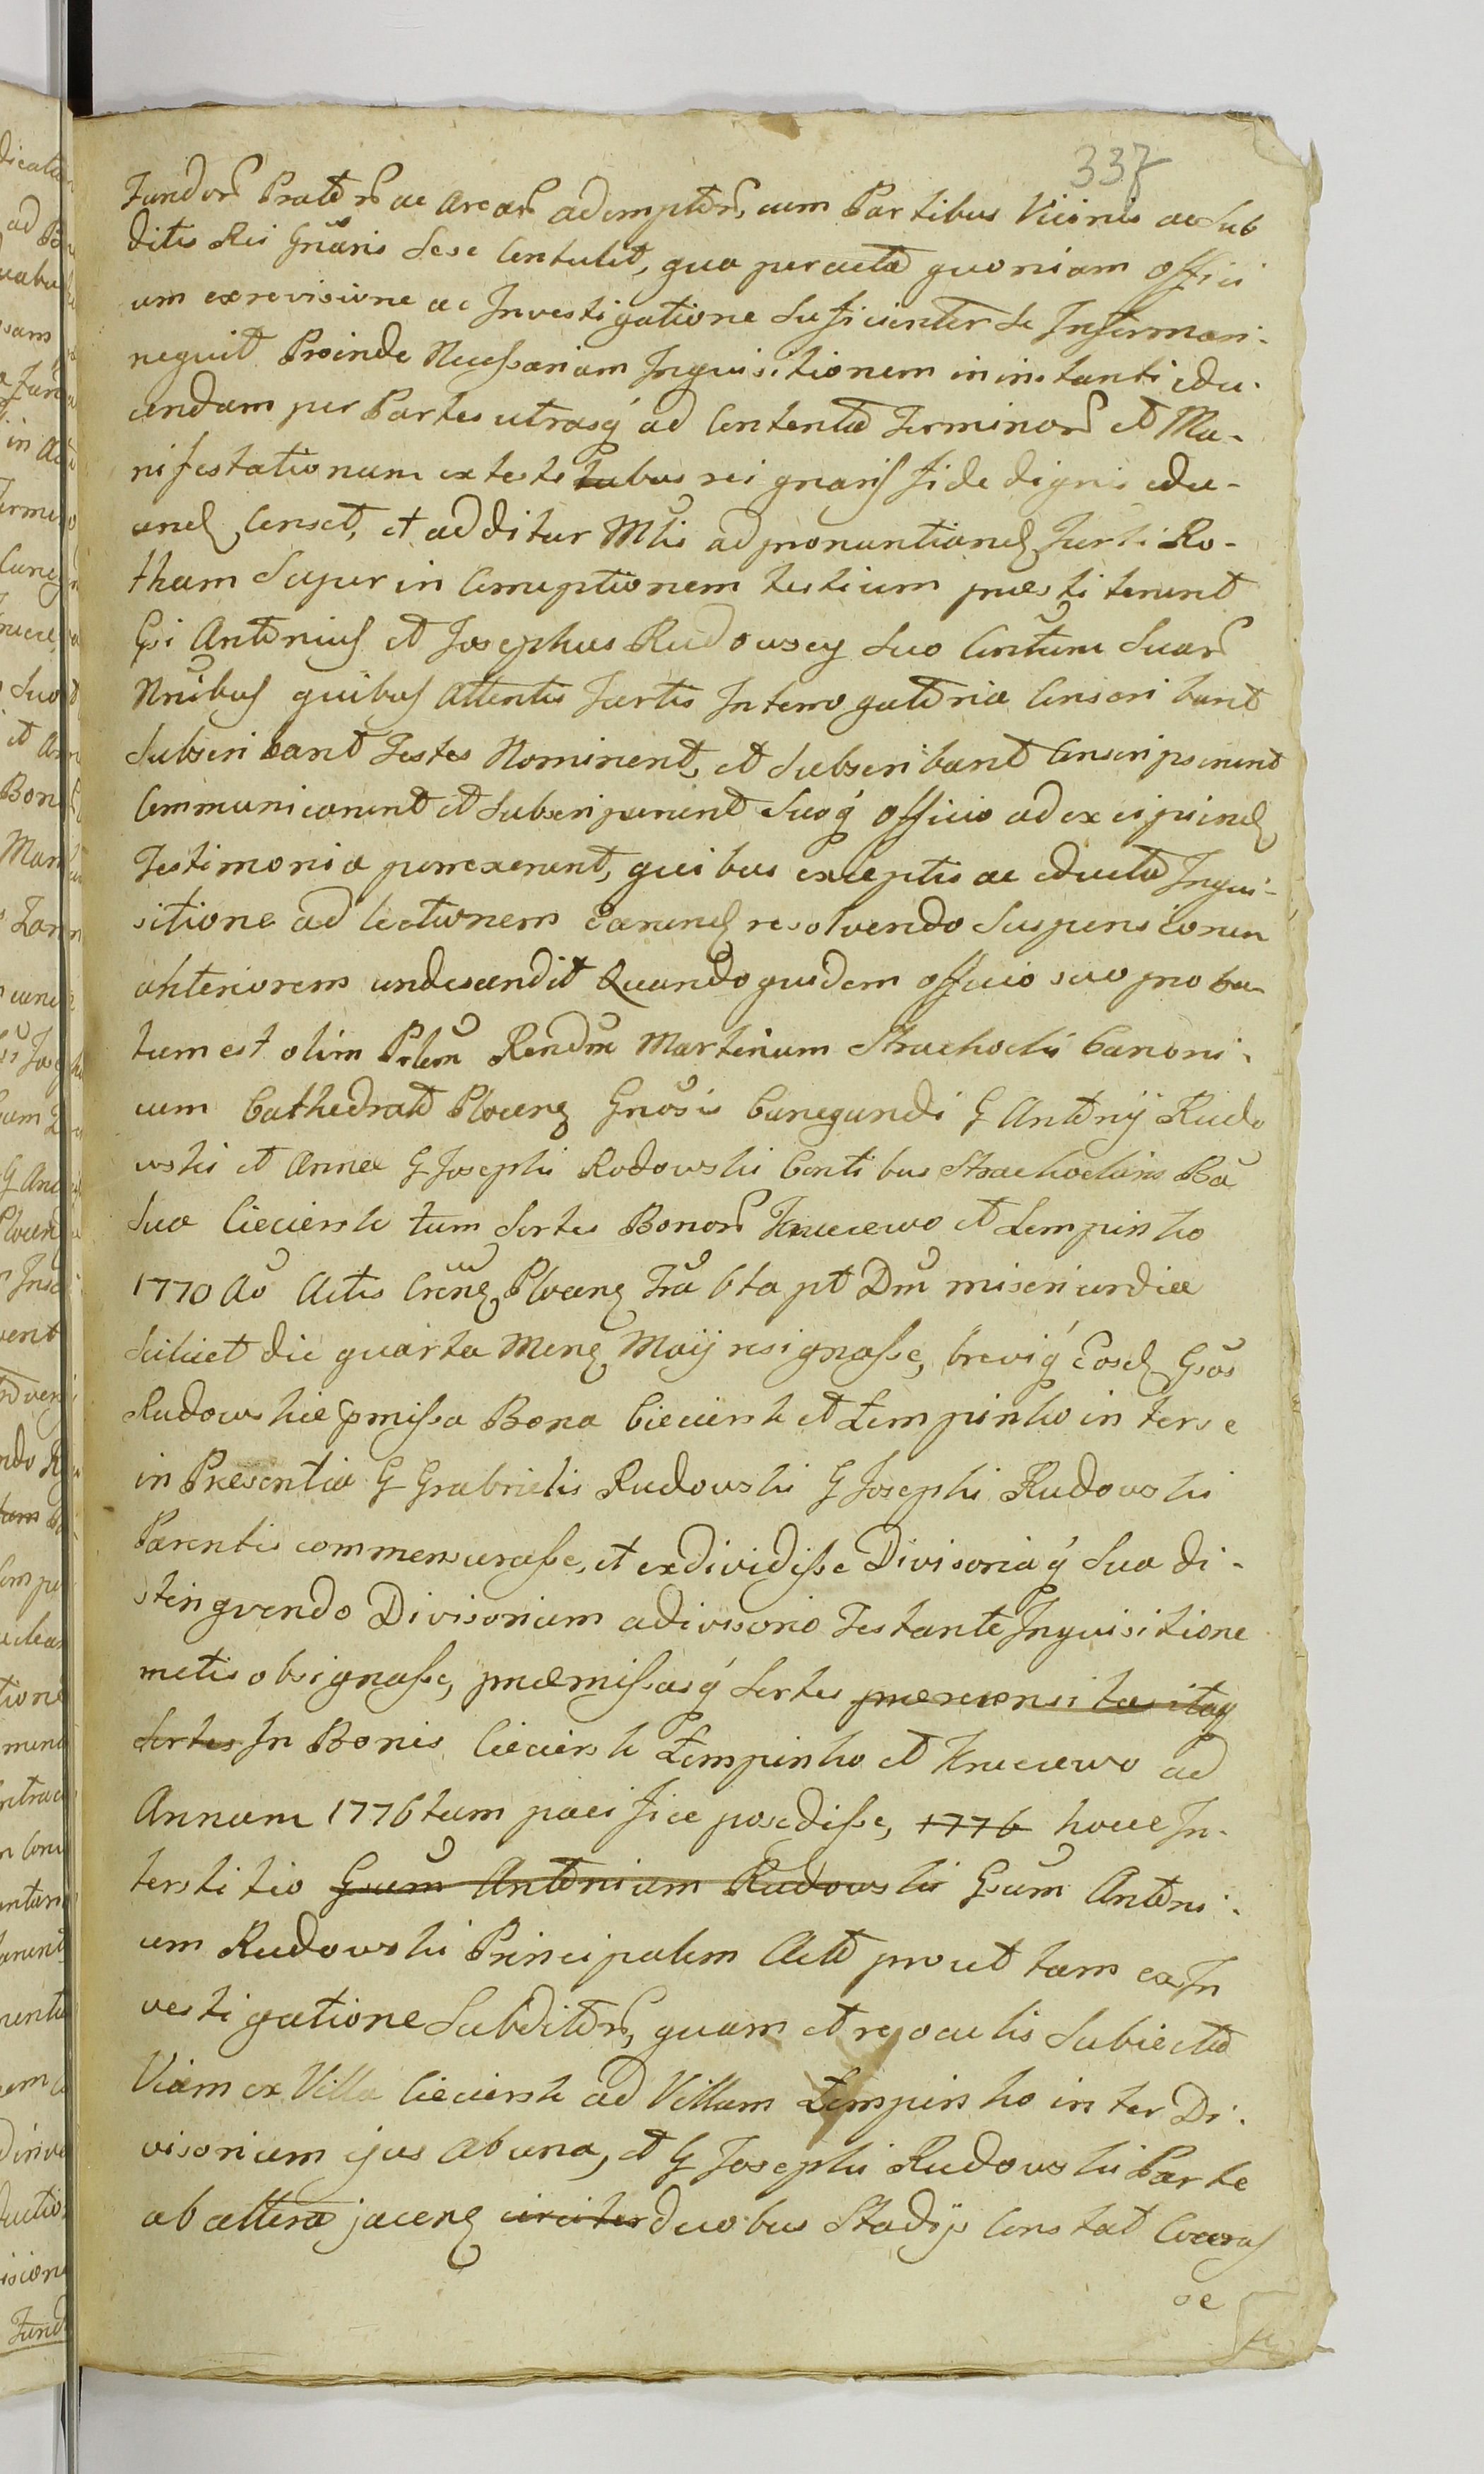 337
Fundor Prator ac Arear ademptor, cum Partibus Vicinis ac Sub
ditis Rei Gnaris Sese Contulit, qua peracta quoniam Offici
um ex revisione ac Investigatione Suficienter Se Informari-
nequit Proinde Necessariam Inquisitionem in instanti edu-
cendam per Partes utrasq ad Contenta Terminor et Ma-
nifestationum ex testitubus rei gnaris fide dignis edu-
cend Censet, et additur Mlis ad pronuntiand Jurti Ro-
tham Super in Corruptionem testium præstiterunt
Gsi Antonius et Josephus Rudowscy Suo Contum Suar
Nnibus quibus Attentis Jurtis Interrogatoria Conscribant
Subscribant Testes Nominent, et Subscribant Conscripserunt
Communicarunt et Subscripserunt Suoq Officio ad excipiend
Testimonia porrexerunt, quibus exceptis ac educta Inqui-
sitione ad lectionem earund resolvendo Suspensionem
ulteriorem condescendit Quandoquidem officio suo proba-
tum est olim Prlem Rendm Martinum Strachocki Canoni-
cum Cathedral Plocens Gnosis Cunegundi G Antonij Rudo
wski et Annæ G Josephi Rodowski Contibus Strachockim Ba
Sua Ciecierski tum Sortes Bonor Kruczewo et Lempinko
1770 Ao Actis Crens Plocens Fra 6ta pt Dm misericordiæ
Scilicet die quarta Mens Maij resignasse, breviq Eosd Gsos
Rudowskie pmissa Bona Ciecierski et Lempinko inter se
in Præsentia G Grabrielis Rudowski G Josephi Rudowski
Parentis commensurasse, et exdividisse Divisoriaq Sua di-
stinguendo Divisorium a divisorio Testante Inquisitione
metis obsignasse, præmissasq Sortes præreconsitas itaq
Sortes In Bonis Ciecierski Lempinko et Kruczewo ad
Annum 1776tum pacifice posedisse, 1776 hocce In-
terstitio Gsum Antonium Rudowski Gsum Antoni-
um Rudowski Principalem Acto prout tam ea In
vestigatione Subditor, quam et reoculis Subiecta
Viam ex Villa Ciecierski ad Villam Lempinko inter Di-
visorium ejus ab una, et G Josephi Rudowski Parte
ab altera jacens circiter duobus Stadijs Constat